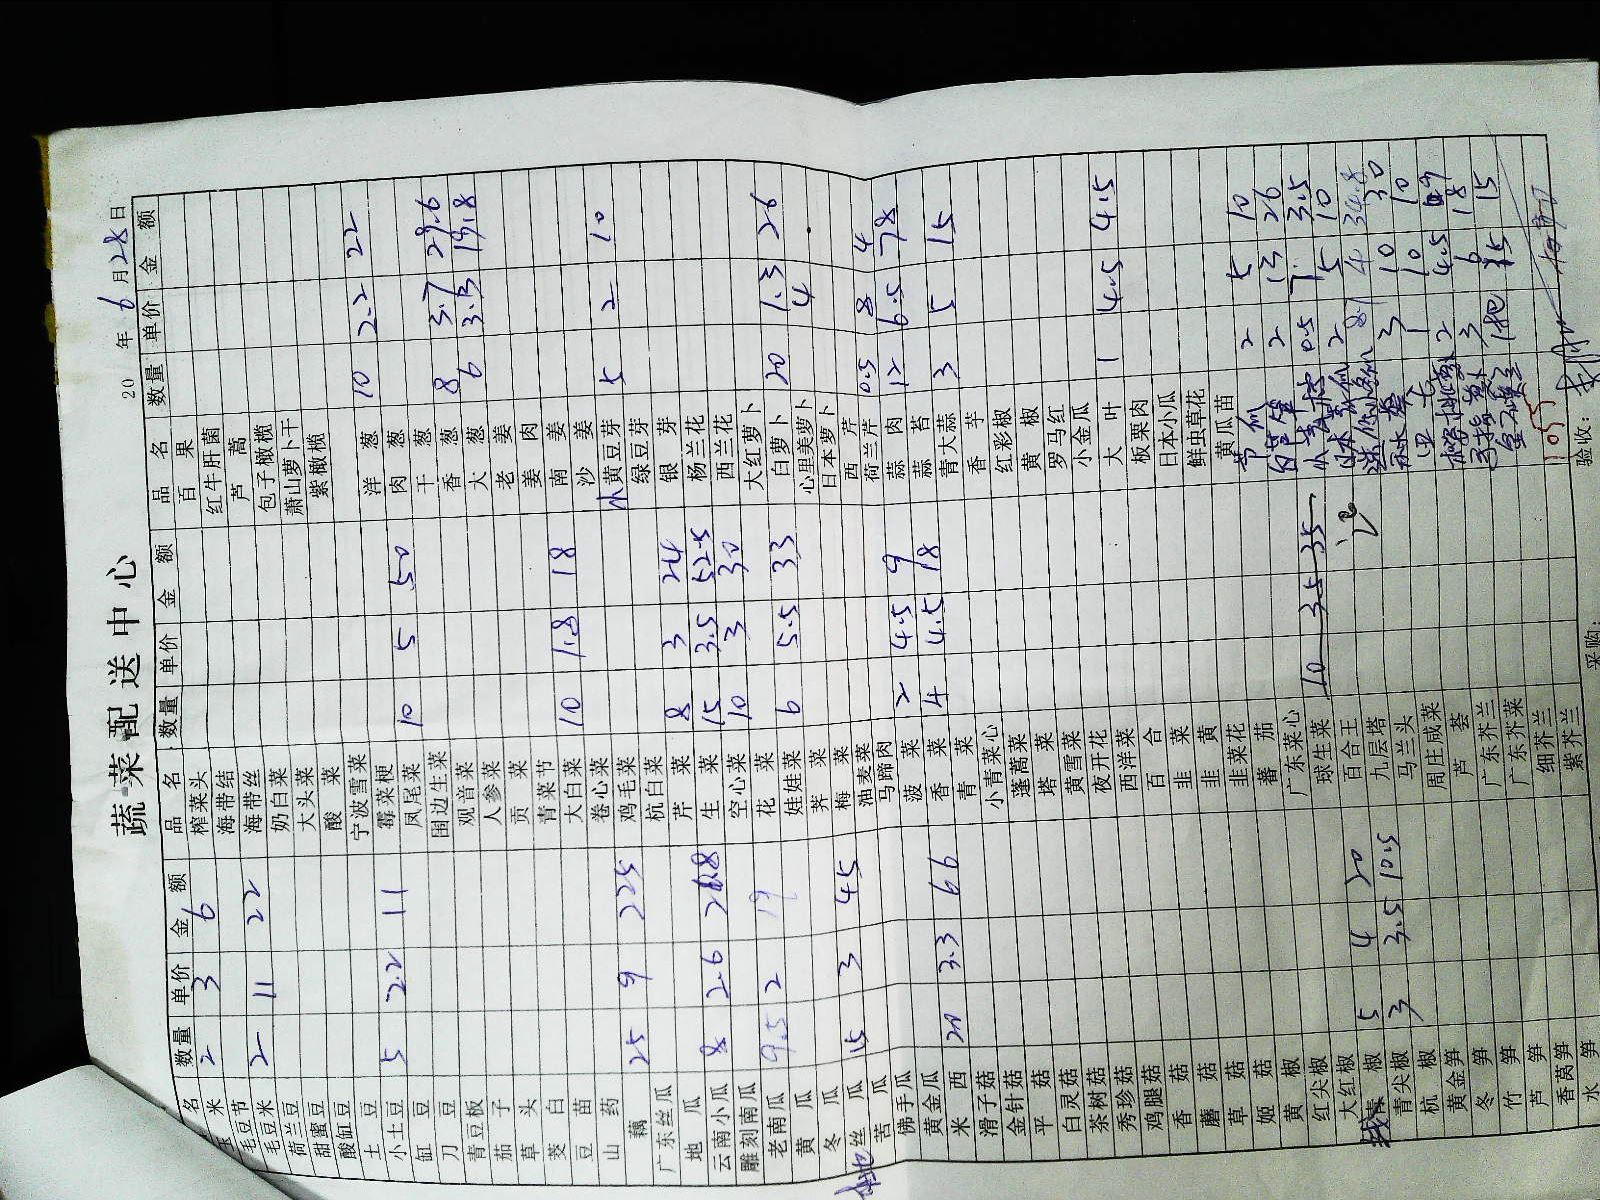 蔬菜配送中心
20 年 6 月 28 日
名 数量 单价 金额
米 2 3 6
毛豆节
毛豆米 2 11 22
荷兰豆
甜蜜豆
酸缸豆
土豆
小土豆 5 2.2 11
缸豆
刀豆
青豆板
茄子
草头
茭白
豆苗
山药
藕 25 9 225
广东丝瓜
地瓜
云南小瓜 8 2.6
雕刻南瓜
老南瓜 9.5 2 19
黄瓜
冬瓜
本地丝瓜 15 3 45
苦瓜
佛手瓜
黄金瓜
米西 20 3.3 66
滑子菇
金针菇
平菇
白灵菇
茶树菇
秀珍菇
鸡腿菇
香菇
蘑菇
草菇
姬菇
黄椒
红尖椒
大红椒
椒 5 4 20
青尖椒 3 3.5 10.5
杭椒
黄金笋
冬笋
竹笋
芦笋
香莴笋
水笋
品名 数量 单价 金额
榨菜头
海带结
海带丝
奶白菜
大头菜
酸菜
宁波雪菜
霉菜梗
凤尾菜 10 5 50
围边生菜
观音菜
人参菜
贡菜
青菜节
大白菜 10 1.8 18
卷心菜
鸡毛菜
杭白菜
芹菜 8 3 24
生菜 15 3.5 52.5
空心菜 10 3 30
花菜
娃娃菜 6 5.5 33
荠菜
梅菜
油麦菜
马蹄肉
菠菜 2 4.5 9
香菜 4 4.5 18
青菜
小青菜心
蓬蒿菜
塔菜
黄雪菜
夜开花
西洋菜
百合
韭菜
韭黄
韭菜花
蕃茄
广东菜心
球生菜 10 3.5 35
百合王
九层塔
马兰头
周庄咸菜
芦荟
广东芥兰
广东芥菜
细芥兰
紫芥兰
品名 数量 单价 金额
百果
红牛肝菌
芦蒿
包子橄榄
萧山萝卜干
紫橄榄
洋葱 10 2.2 22
肉葱
干葱
香葱 8 3.7 29.6
大葱 6 3.3 19.8
老姜
姜肉
南姜
沙姜
黄豆芽 5 2 10
绿豆芽
银芽
杨兰花
西兰花
大红萝卜
白萝卜 20 1.3 26
心里美萝卜 4
日本萝卜
西芹
荷兰芹 0.5 8 4
蒜肉 12 6.5 78
蒜苔
青大蒜 3 5 15
香芋
红彩椒
黄椒
罗马红
小金瓜
大叶 1 4.5 4.5
板栗肉
日本小瓜
鲜虫草花
黄瓜苗
节瓜 2 5 10
2 13 26
0.5 7 3.5
2 5 10
8.7 4 34.8
3 10 30
1 10 10
2 4.5 9
手指萝卜 3 6 18
1把 15 15
1055
采购：
验收：